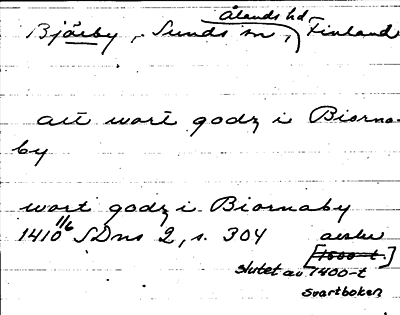 Ålands hd
Bjärby, Sunds sn, Finland
alt wort godz i Biorna-
by
wort godz i Biornaby
1410 11/6 SDns 2, s. 304 avskr
[1500-t]
slutet av 1400-t
svartboken